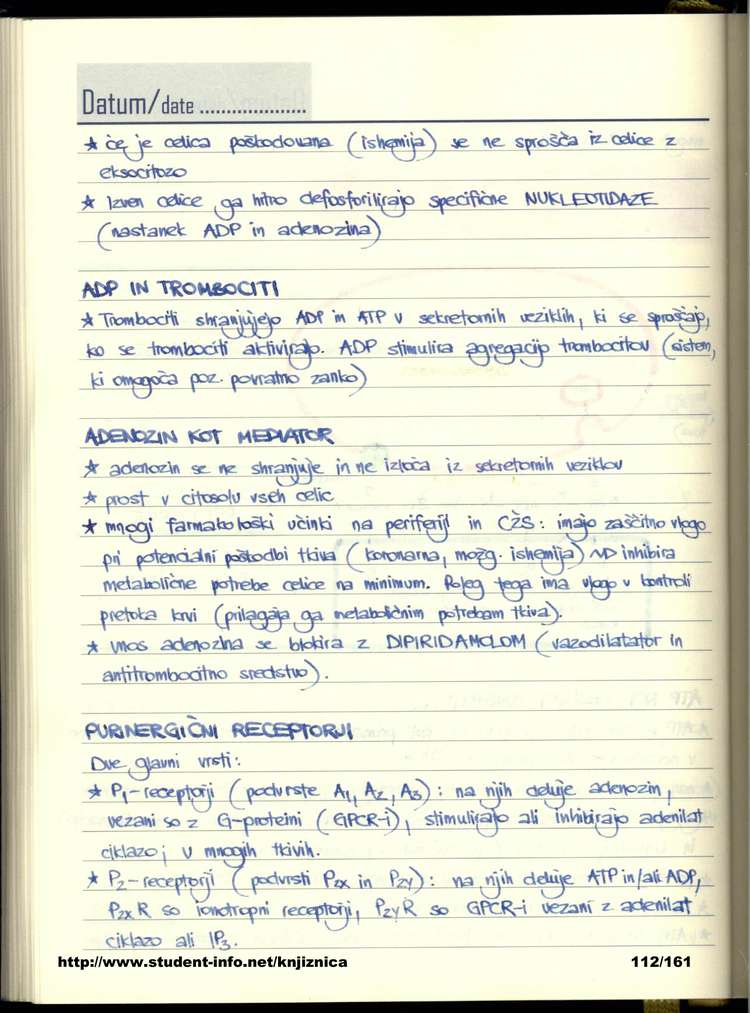 Datum/date ....................
* če je celica poškodovana (ishemija) se ne sprošča iz celice z
eksocitozo
* Izven celice ga hitro defosforilirajo specifične NUKLEOTIDAZE
(nastanek ADP in adenozina)
ADP IN TROMBOCITI
* Trombociti shranjujejo ADP in ATP v sekretornih veziklih, ki se sproščajo,
ko se trombociti aktivirajo. ADP stimulira agregacijo trombocitov (sistem,
ki omogoča poz. povratno zanko)
ADENOZIN KOT MEDIATOR
* adenozin se ne shranjuje in ne izloča iz sekretornih veziklov
* prost v citosolu vseh celic
* mnogi farmakološki učinki na periferiji in CŽS: imajo zaščitno vlogo
pri potencialni poškodbi tkiva (koronarna, možg. ishemija) ~> inhibira
metabolične potrebe celice na minimum. Poleg tega ima vlogo v kontroli
pretoka krvi (prilagaja ga metaboličnim potrebam tkiva).
* vnos adenozina se blokira z DIPIRIDAMOLOM (vazodilatator in
antitrombocitno sredstvo).
PURINERGIČNI RECEPTORJI
Dve glavni vrsti:
* P1-receptorji (podvrste A1, A2, A3): na njih deluje adenozin,
vezani so z G-proteini (GPCR-i), stimulirajo ali inhibirajo adenilat
ciklazo; v mnogih tkivih.
* P2-receptorji (podvrsti P2X in P2Y): na njih deluje ATP in/ali ADP,
P2X R so ionotropni receptorji, P2Y R so GPCR-i vezani z adenilat
ciklazo ali IP3.
http://www.student-info.net/knjiznica 112/161